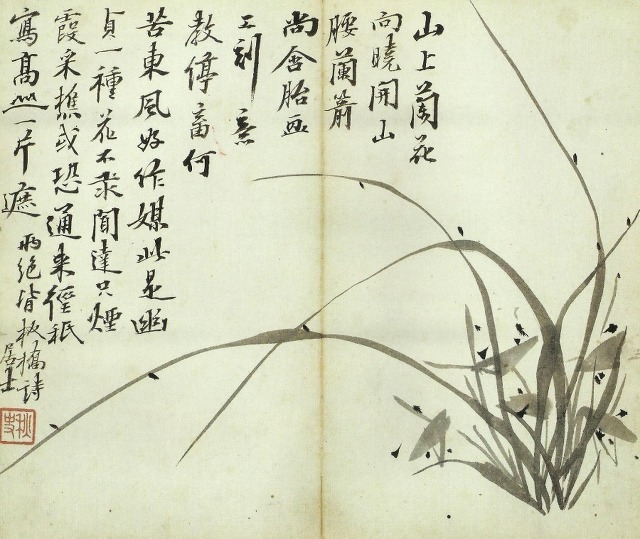 山上蘭花
向曉開山
腰蘭箭
尚含胎画
工刻意
教停畜何
苦東風好作媒此是幽
貞一種花不求聞達只煙
霞采樵或恐通来徑祇
寫高山一片遮 兩絕皆板橋詩
居士